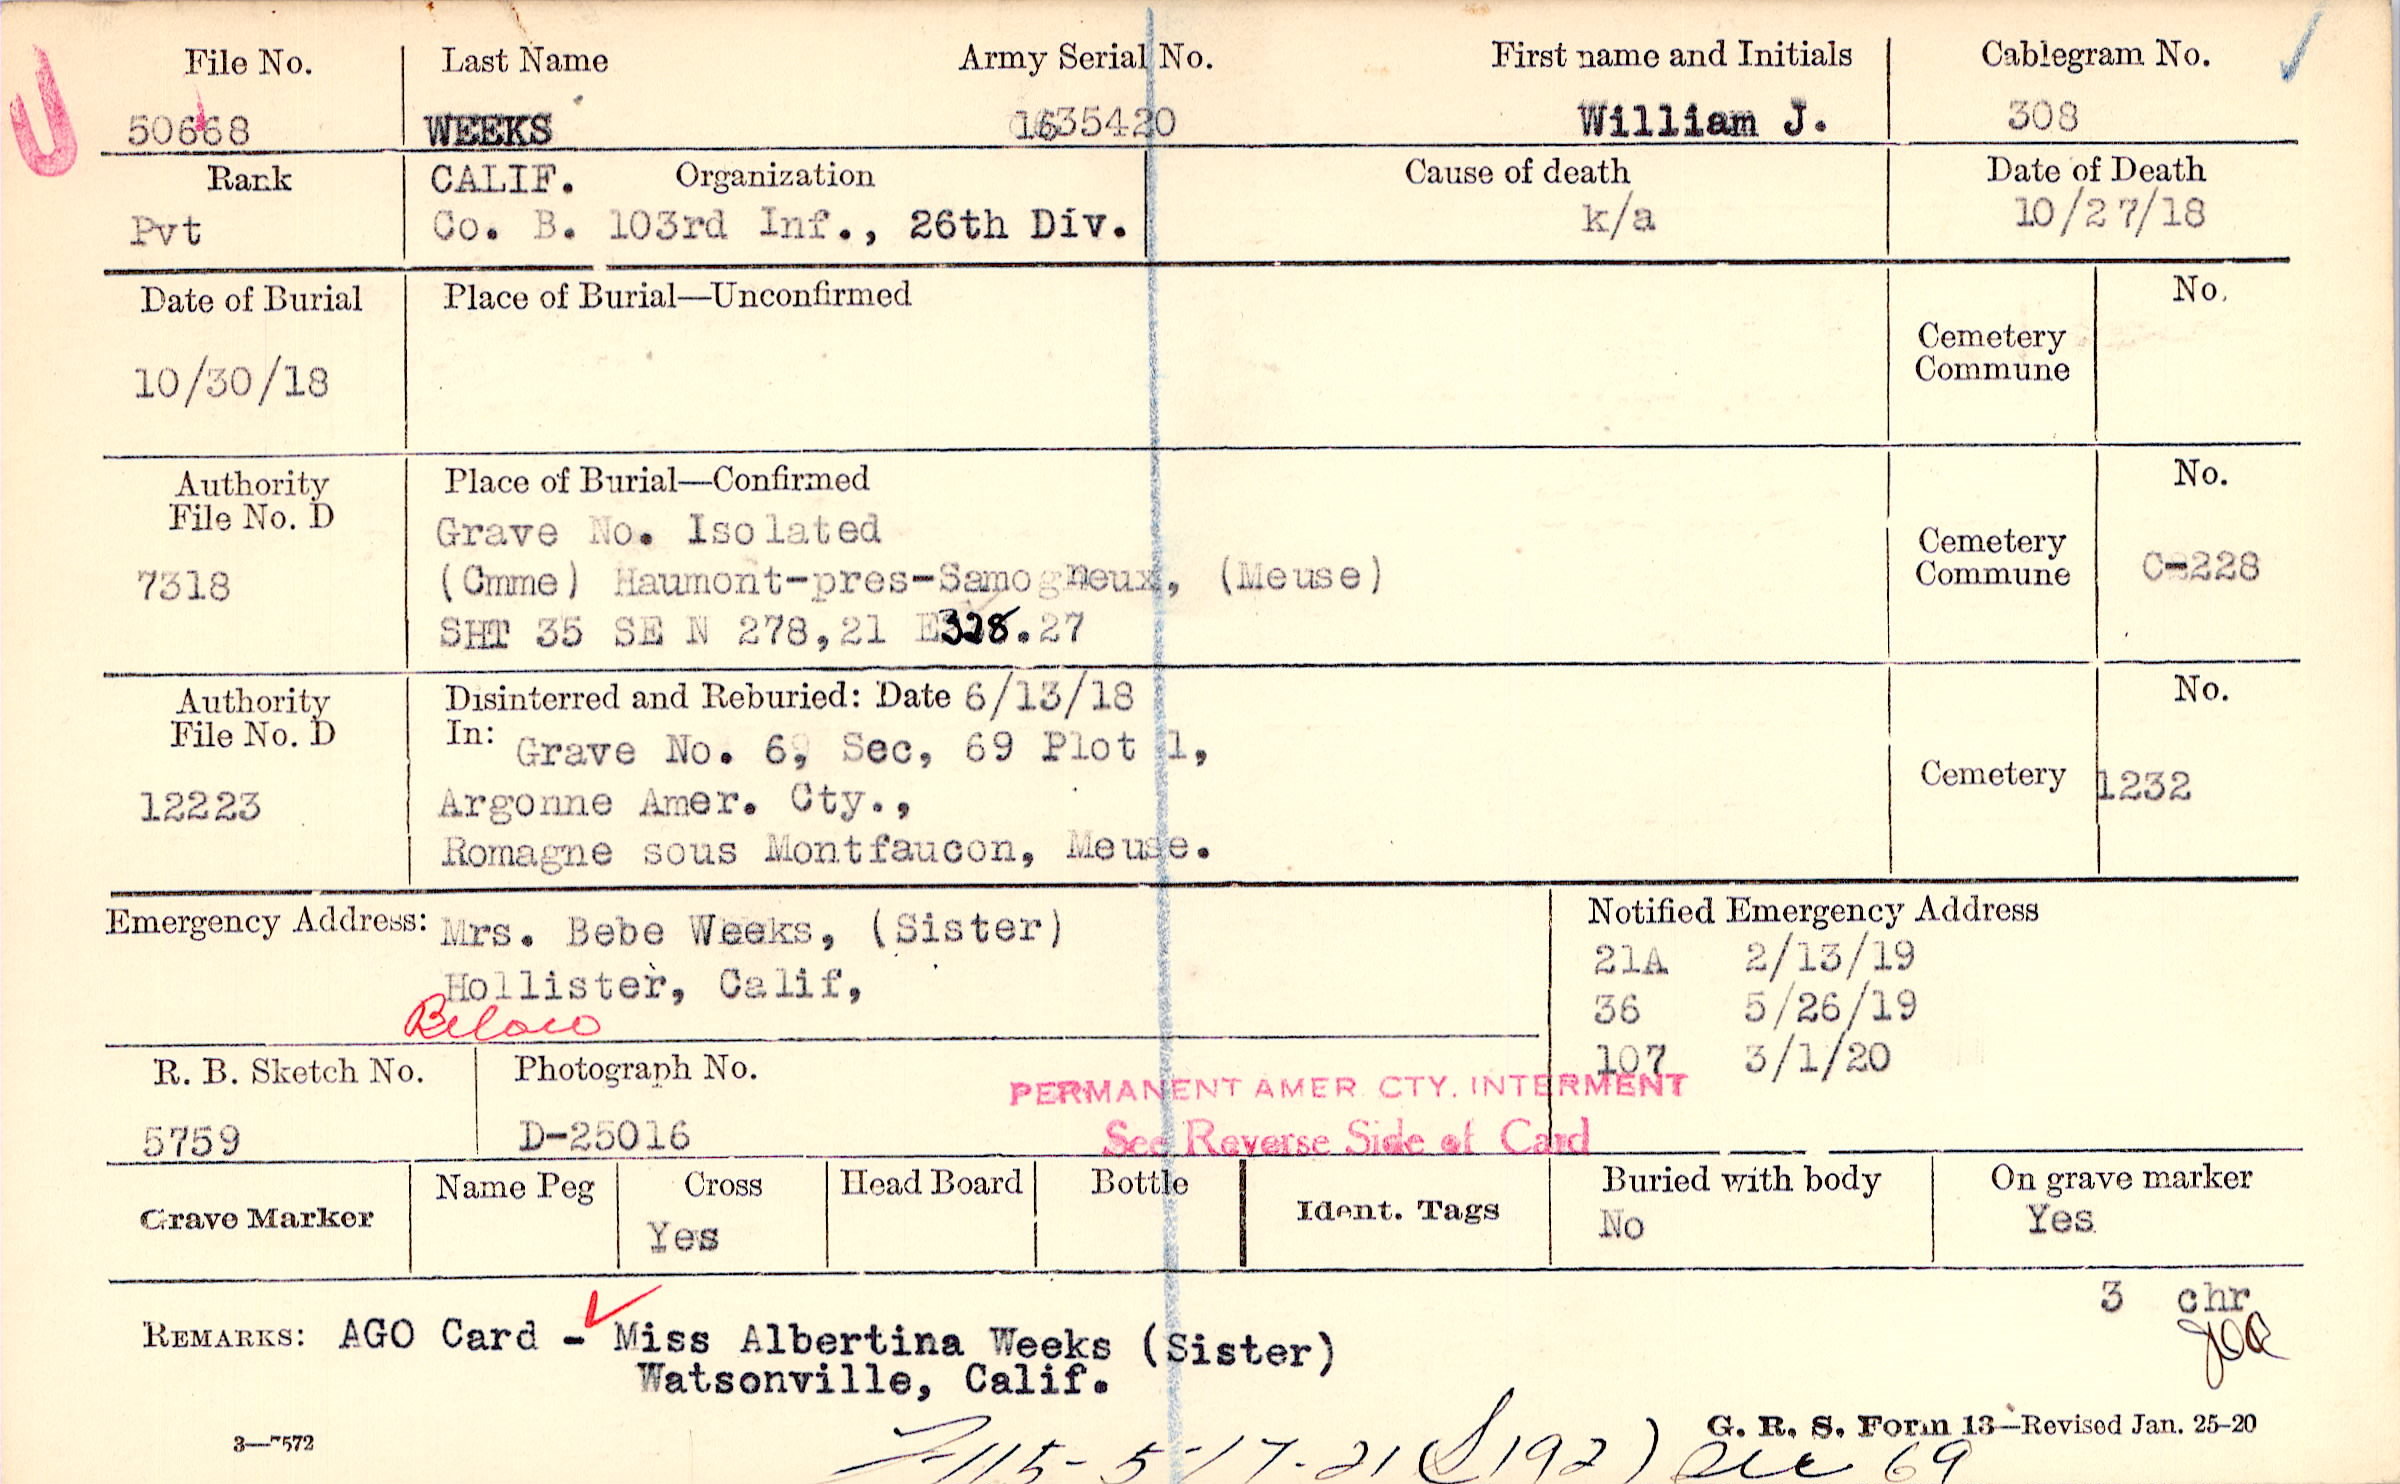 File No. Last Name Army Serial No. First name and Initials Cablegram No.
50668 WEEKS 1635420 William J. 308
Rank CALIF. Organization Cause of death Date of Death
Pvt Co. B. 103rd Inf., 26th Div. k/a 10/27/18
Date of Burial Place of Burial—Unconfirmed No.
Cemetery
Commune
10/30/18
Authority Place of Burial—Confirmed No.
File No. D Grave No. Isolated
Cemetery
Commune
7318 (Cmme) Haumont-pres-Samogneux, (Meuse) C-228
SHT 35 SE N 278,21 E328.27
Authority Disinterred and Reburied: Date 6/13/18 No.
File No. D In: Grave No. 6, Sec, 69 Plot 1,
Cemetery 1232
12223 Argonne Amer. Cty.,
Romagne sous Montfaucon, Meuse.
Emergency Address: Mrs. Bebe Weeks, (Sister) Notified Emergency Address
21A 2/13/19
Hollister, Calif, 36 5/26/19
Below
107 3/1/20
R. B. Sketch No. Photograph No.
PERMANENT AMER. CTY. INTERMENT
5759 D-25016 See Reverse Side of Card
Name Peg Cross Head Board Bottle Buried with body On grave marker
Grave Marker Yes Ident. Tags No Yes
3 chr
REMARKS: AGO Card - Miss Albertina Weeks (Sister)
Watsonville, Calif.
G. R. S. Form 13—Revised Jan. 25-20
3—7572
115-5-17-21 (S192) Sec 69